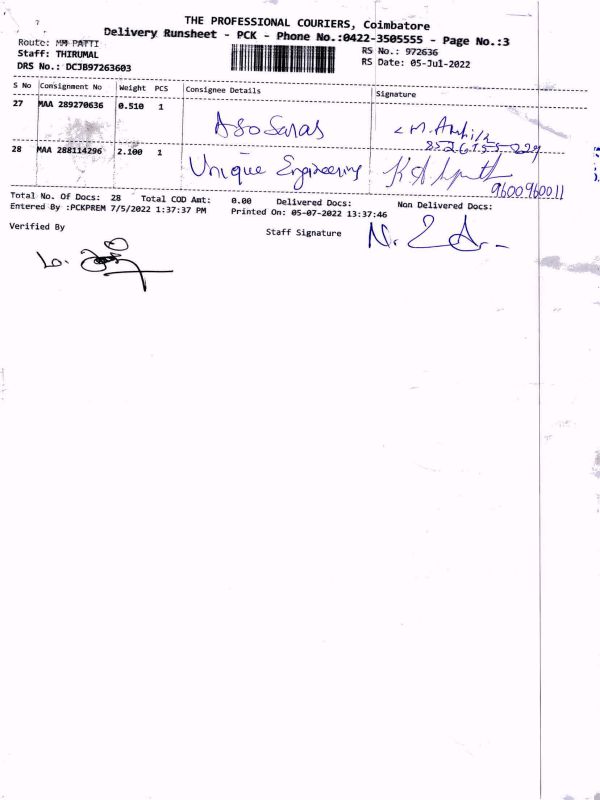 THE PROFESSIONAL COURIERS, Coimbatore
Delivery Runsheet - PCK - Phone No.:0422-3505555 - Page No.:3
Route: MM PATTI
RS No.: 972636
Staff: THIRUMAL
RS Date: 05-Jul-2022
DRS No.: DCJB97263603
S No Consignment No Weight PCS Consignee Details Signature
27 MAA 289270636 0.510 1
28 MAA 288114296 2.100 1 Unique Engineering
9600960011
Total No. Of Docs: 28 Total COD Amt: 0.00 Delivered Docs: Non Delivered Docs:
Entered By :PCKPREM 7/5/2022 1:37:37 PM Printed On: 05-07-2022 13:37:46
Verified By Staff Signature